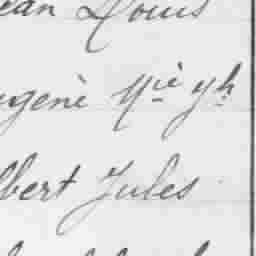 ean Louis
ugène Mie yh
lbert Jules